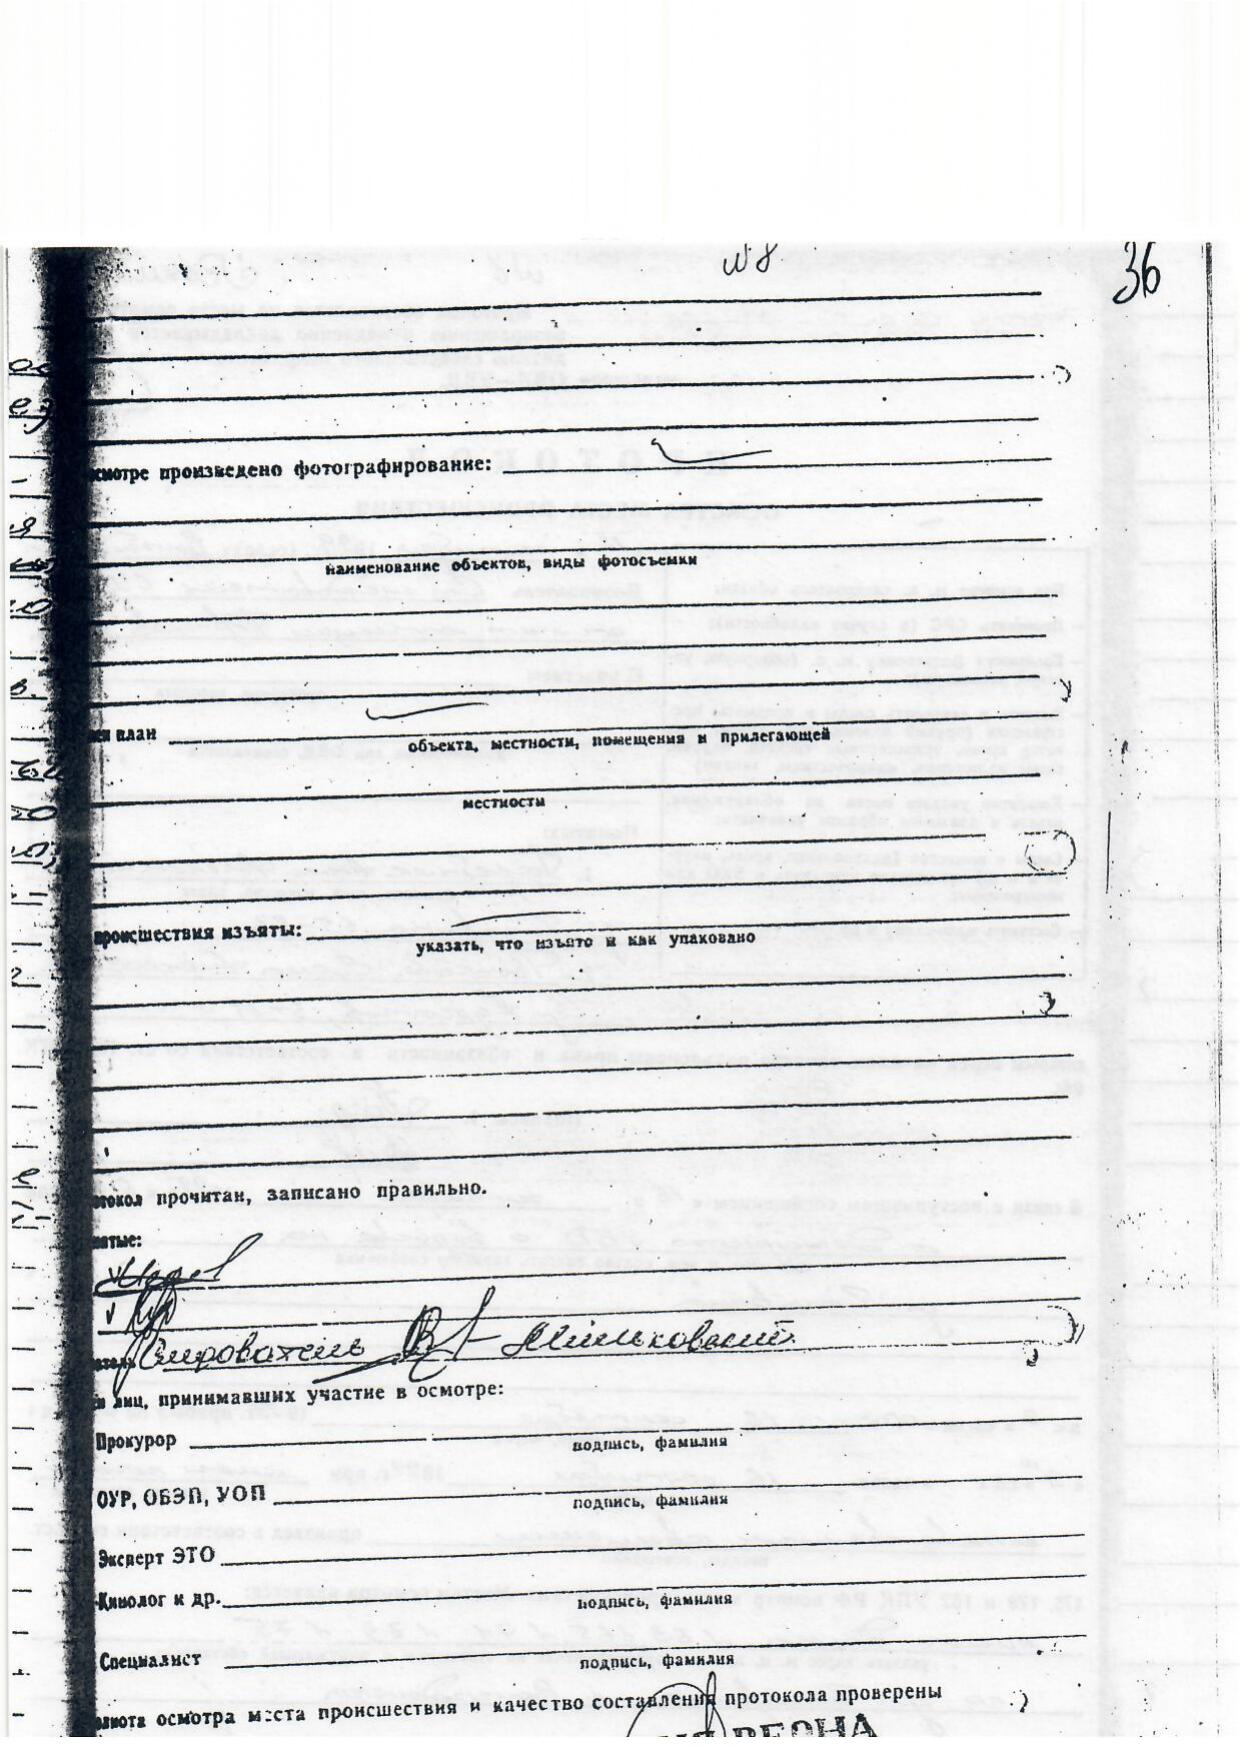 №8
36
осмотре произведено фотографирование:
наименование объектов, виды фотосъемки
план
объекта, местности, помещения и прилегающей
местности
происшествия изъяты:
указать, что изъято и как упаковано
протокол прочитан, записано правильно.
нятые:
Следователь
и лиц, принимавших участие в осмотре:
Прокурор
подпись, фамилия
ОУР, ОБЭП, УОП
подпись, фамилия
Эксперт ЭТО
Кинолог и др.
подпись, фамилия
Специалист
подпись, фамилия
олнота осмотра места происшествия и качество составления протокола проверены
ВЕРНА